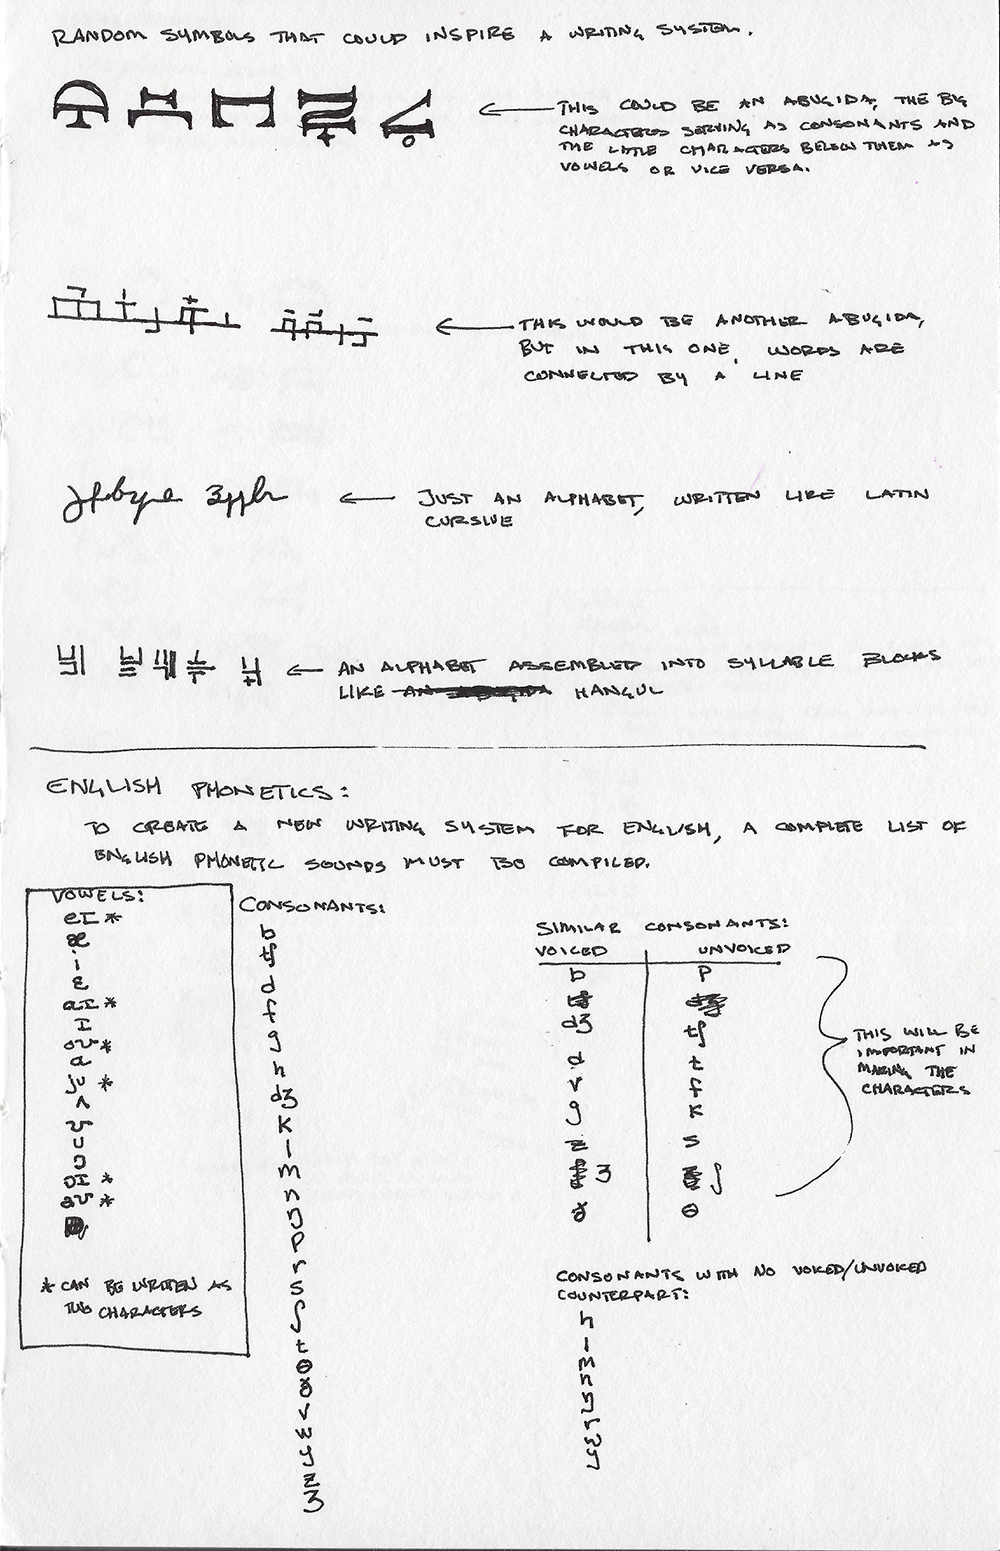 RANDOM SYMBOLS THAT COULD INSPIRE A WRITING SYSTEM.
THIS COULD BE AN ABUGIDA, THE BIG
CHARACTERS SERVING AS CONSONANTS AND
THE LITTLE CHARACTERS BELOW THEM AS
VOWELS OR VICE VERSA.
THIS WOULD BE ANOTHER ABUGIDA,
BUT IN THIS ONE, WORDS ARE
CONNECTED BY A LINE
JUST AN ALPHABET, WRITTEN LIKE LATIN
CURSIVE
AN ALPHABET ASSEMBLED INTO SYLLABLE BLOCKS
LIKE AN ABUGIDA HANGUL
ENGLISH PHONETICS:
TO CREATE A NEW WRITING SYSTEM FOR ENGLISH, A COMPLETE LIST OF
ENGLISH PHONETIC SOUNDS MUST BE COMPILED.
VOWELS:
eɪ *
æ
i
ɛ
aɪ *
ɪ
oʊ *
ɑ
ju *
ʌ
ʊ
u
ɔ
ɔɪ *
aʊ *
* CAN BE WRITTEN AS
TWO CHARACTERS
CONSONANTS:
b
tʃ
d
f
g
h
dʒ
K
l
m
n
ŋ
p
r
s
ʃ
t
θ
ð
v
w
j
z
ʒ
SIMILAR CONSONANTS:
VOICED UNVOICED
b p
dʒ tʃ
d t
v f
g K
z s
ʒ ʃ
ð θ
THIS WILL BE
IMPORTANT IN
MAKING THE
CHARACTERS
CONSONANTS WITH NO VOICED/UNVOICED
COUNTERPART:
h
l
m
n
ŋ
r
w
j